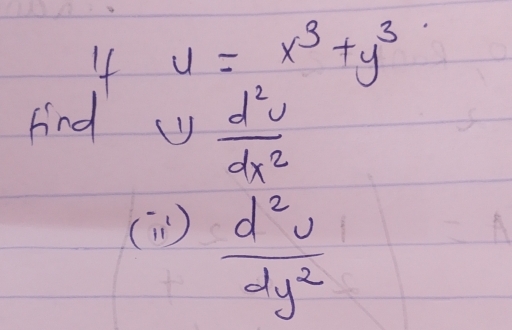 If u = x³ + y³.
find (i) d²u/dx²
(ii) d²u/dy²